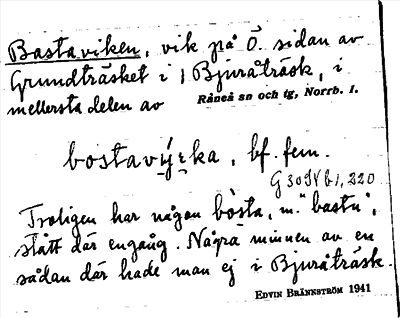 Bastaviken, vik på Ö. sidan av
Grundträsket i Bjuråträsk, i
mellersta delen av Råneå sn och tg, Norrb. l.
bostavı̣́ka, bf. fem.
G 309Vb1, 220
Troligen har någon bòsta, m. "bastu",
stått där engång. Några minnen av en
sådan där hade man ej i Bjuråträsk.
EDVIN BRÄNNSTRÖM 1941